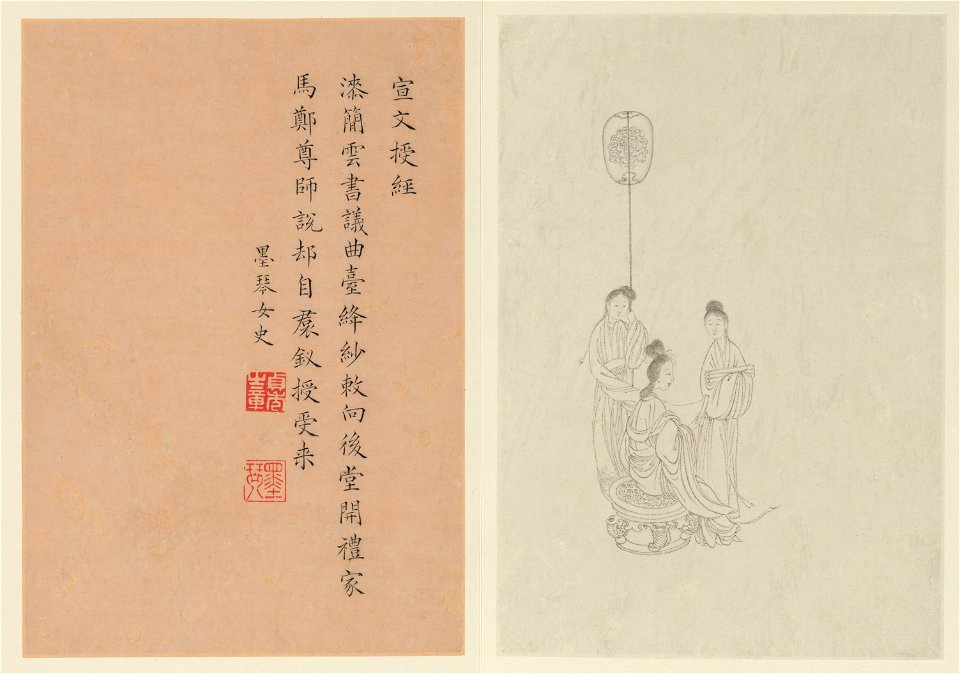 宣文授經
漆簡雲書議曲臺絳紗敕向後堂開禮家
馬鄭尊師説却自裠釵授受来
墨琴女史
貞秀
墨琴